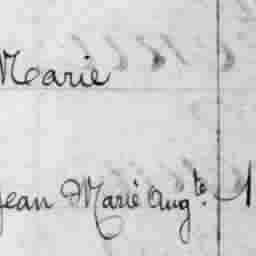 Marie
Jean Marie Aug.te